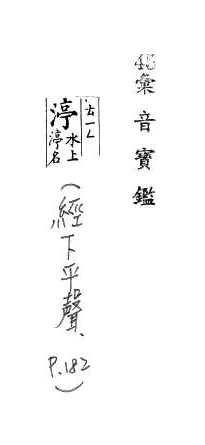 48彙音寶鑑
ㄊㄧㄥ
渟 水上渟名
(經下平聲、P.182)